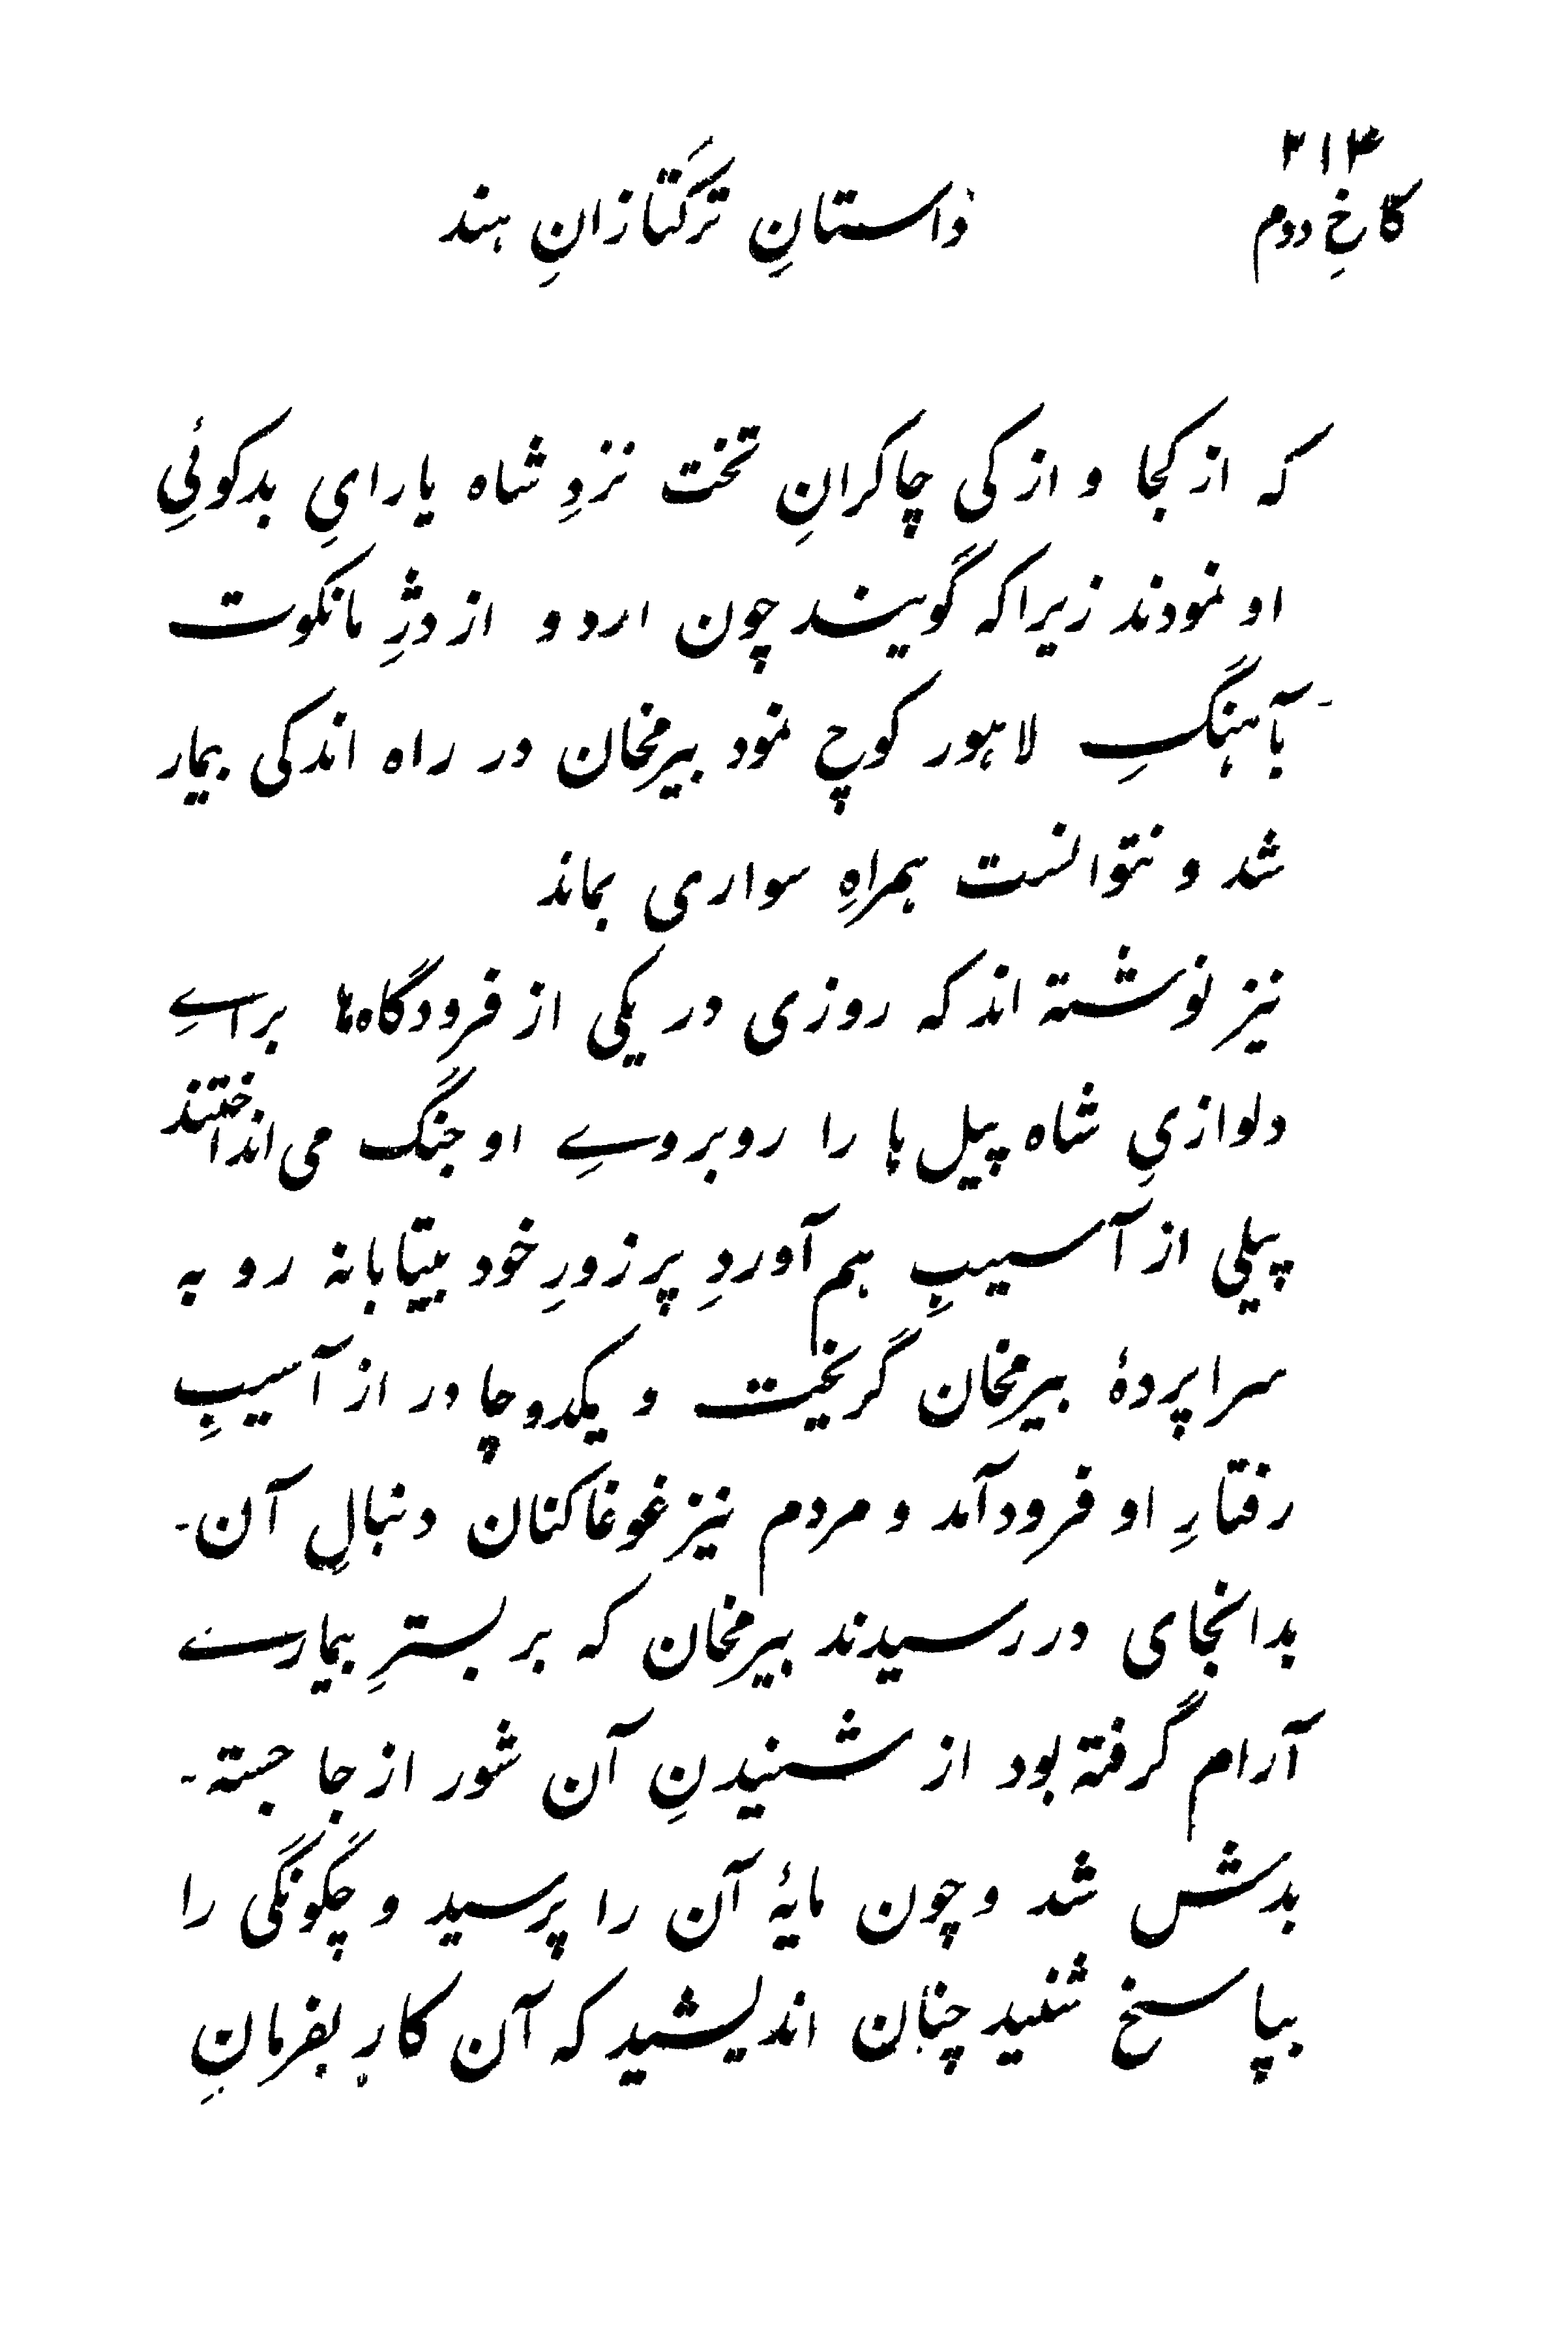 ۲۱۴
کاخِ دوم داستانِ ترکتازانِ هند
که از کجا و از کی چاکرانِ تخت نزدِ شاه یارایِ بدگوئیِ
او نمودند زیرا که گویند چون اردو از دژِ مانکوت
بآهنگِ لاهور کوچ نمود بیرمخان در راه اندکی بیمار
شد و نتوانست همراهِ سواری بماند
نیز نوشته اند که روزی در یکی از فرودگاه‌ها براےِ
دلوازیِ شاه پیل ها را روبروےِ او جنگ می انداختند
پیلی از آسیبِ هم آوردِ پر زورِ خود بیتابانه رو به
سراپردۀ بیرمخان گریخت و یکدو چادر از آسیبِ
رفتارِ او فرود آمد و مردم نیز غوغا کنان دنبالِ آن-
بدانجای در رسیدند بیرمخان که بر بسترِ بیمارے
آرام گرفته بود از شنیدنِ آن شور از جا جسته-
بدش شد و چون مایۀ آن را پرسید و چگونگی را
بپاسخ شنید چنان اندیشید که آن کار بفرمانِ